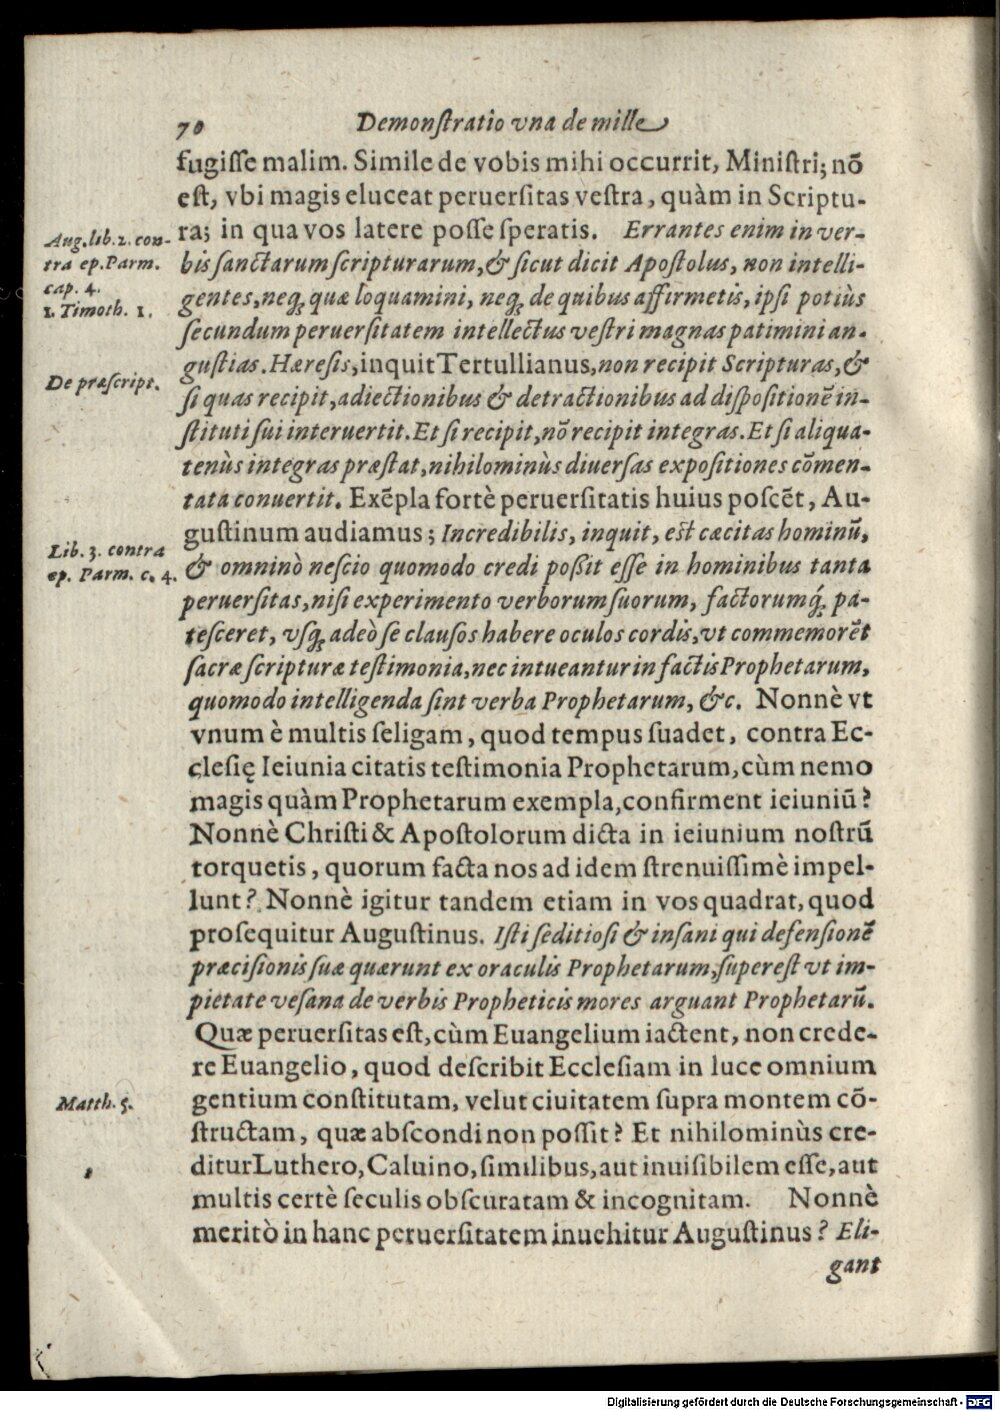 70 Demonſtratio vna de mille
fugiſſe malim. Simile de vobis mihi occurrit, Miniſtri; nõ
eſt, vbi magis eluceat peruerſitas veſtra, quàm in Scriptu-
ra; in qua vos latere poſſe ſperatis. Errantes enim in ver-
bis ſanctarum ſcripturarum, & ſicut dicit Apoſtolus, non intelli-
gentes, neq́; quæ loquamini, neq́; de quibus affirmetis, ipſi potiùs
ſecundum peruerſitatem intellectus veſtri magnas patimini an-
guſtias. Hæreſis, inquit Tertullianus, non recipit Scripturas, &
ſi quas recipit, adiectionibus & detractionibus ad diſpoſitionē in-
ſtituti ſui interuertit. Et ſi recipit, nõ recipit integras. Et ſi aliqua-
tenùs integras præſtat, nihilominùs diuerſas expoſitiones cõmen-
tata conuertit. Exēpla fortè peruerſitatis huius poſcēt, Au-
guſtinum audiamus; Incredibilis, inquit, eſt cæcitas hominū,
& omninò neſcio quomodo credi poßit eſſe in hominibus tanta
peruerſitas, niſi experimento verborum ſuorum, factorumq́; pa-
teſceret, vſq́; adeò ſe clauſos habere oculos cordis, vt commemorēt
ſacræ ſcripturæ teſtimonia, nec intueantur in factis Prophetarum,
quomodo intelligenda ſint verba Prophetarum, &c. Nonnè vt
vnum è multis ſeligam, quod tempus ſuadet, contra Ec-
cleſię Ieiunia citatis teſtimonia Prophetarum, cùm nemo
magis quàm Prophetarum exempla, confirment ieiuniū?
Nonnè Chriſti & Apoſtolorum dicta in ieiunium noſtrū
torquetis, quorum facta nos ad idem ſtrenuiſſimè impel-
lunt? Nonnè igitur tandem etiam in vos quadrat, quod
proſequitur Auguſtinus. Iſti ſeditioſi & inſani qui defenſionē
præciſionis ſuæ quærunt ex oraculis Prophetarum, ſupereſt vt im-
pietate veſana de verbis Propheticis mores arguant Prophetarū.
Quæ peruerſitas eſt, cùm Euangelium iactent, non crede-
re Euangelio, quod deſcribit Eccleſiam in luce omnium
gentium conſtitutam, velut ciuitatem ſupra montem cõ-
ſtructam, quæ abſcondi non poſſit? Et nihilominùs cre-
ditur Luthero, Caluino, ſimilibus, aut inuiſibilem eſſe, aut
multis certè ſeculis obſcuratam & incognitam. Nonnè
meritò in hanc peruerſitatem inuehitur Auguſtinus? Eli-
gant
Aug. lib. 2. con-
tra ep. Parm.
cap. 4.
1. Timoth. 1.
De præſcript.
Lib. 3. contra
ep. Parm. c. 4.
Matth. 5.
Digitalisierung gefördert durch die Deutsche Forschungsgemeinschaft - DFG